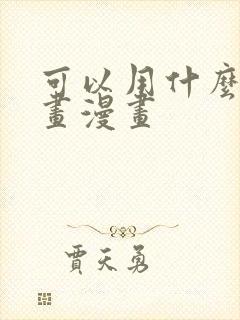 可以用什麼
畫漫畫
賈天勇